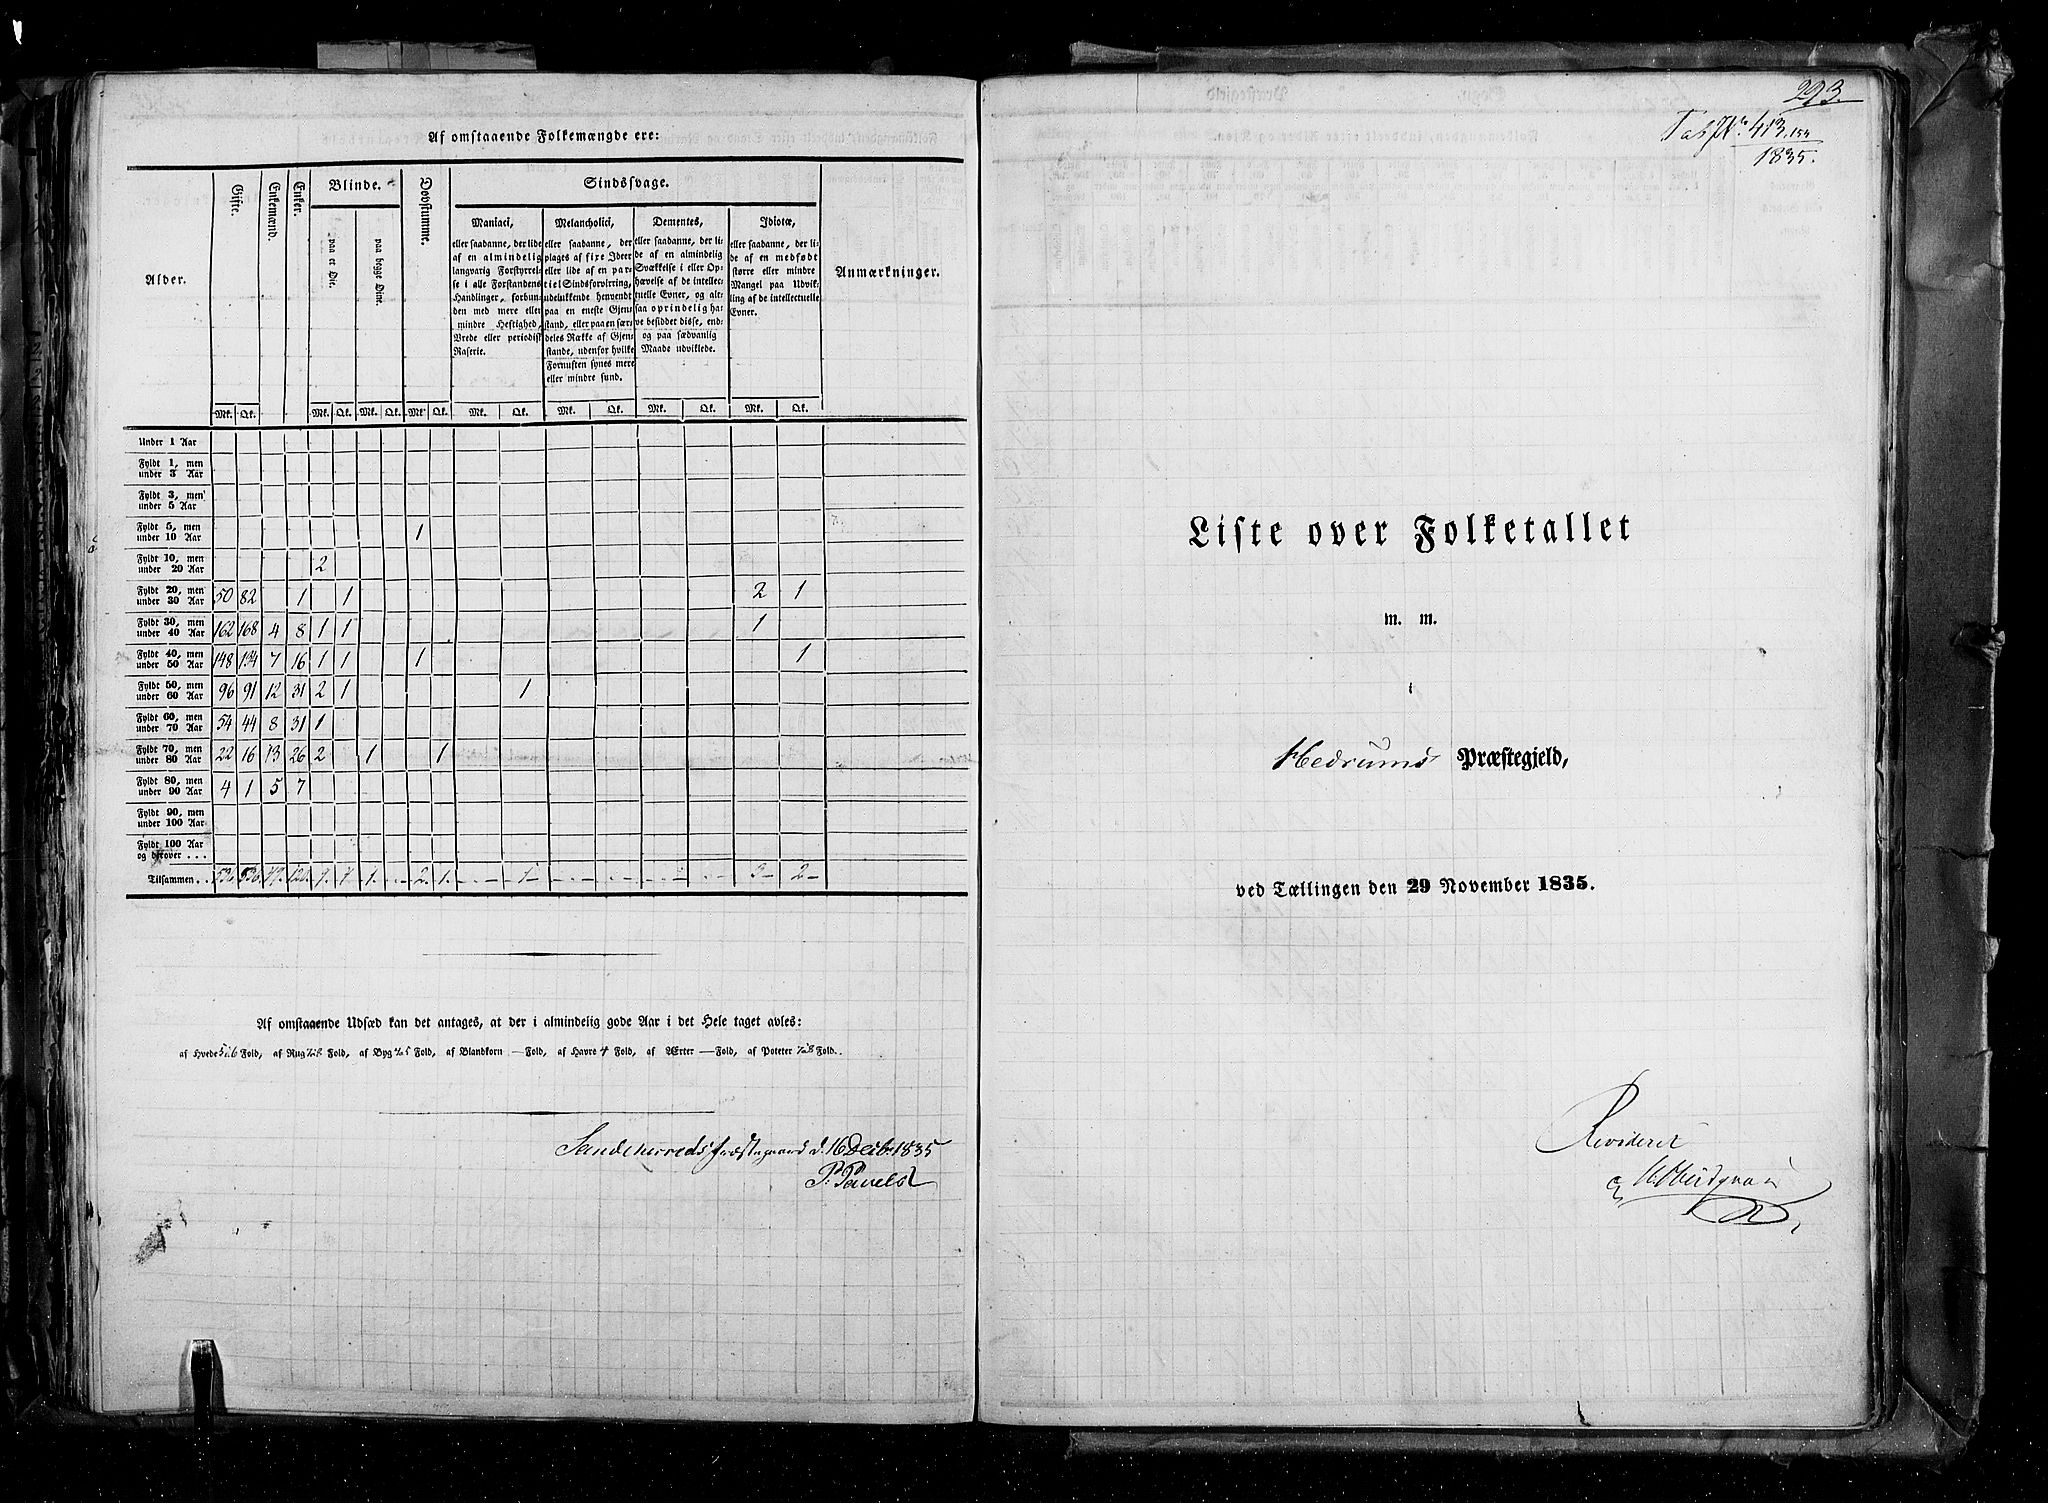 Af omstaaende Folkemængde ere:
Alder.
Gifte.
Enkemænd.
Enker.
Blinde.
paa et Øie.
paa begge Øine.
Døvstumme.
Sindssvage.
Maniaci,
eller saadanne, der lide
af en almindelig
langvarig Forstyrrel-
se i alle Forstandens
Handlinger, forbun-
den med mere eller
mindre Heftighed,
Vrede eller periodisk
Raserie.
Melancholici,
eller saadanne, der
plages af fixe Ideer
eller lide af en par-
tiel Sindsforvirring,
udelukkende henvendt
paa en eneste Gjen-
stand, eller paa en sær-
deles Række af Gjen-
stande, udenfor hvilke
Fornuften synes mere
eller mindre sund.
Dementes,
eller saadanne, der li-
de af en almindelig
Svækkelse i eller Op-
hævelse af de intellec-
tuelle Evner, og alt-
saa oprindelig ha-
ve besiddet disse, end-
og paa sædvanlig
Maade udviklede.
Idiotæ,
eller saadanne, der li-
de af en medfødt
større eller mindre
Mangel paa Udvik-
ling af de intellectuelle
Evner.
Anmærkninger.
Mk. Qk. Mk. Qk. Mk. Qk. Mk. Qk. Mk. Qk. Mk. Qk. Mk. Qk. Mk. Qk.
Under 1 Aar
Fyldt 1, men
under 3 Aar
Fyldt 3, men
under 5 Aar
Fyldt 5, men
under 10 Aar 1
Fyldt 10, men
under 20 Aar 2
Fyldt 20, men
under 30 Aar 50 82 1 1 2 1
Fyldt 30, men
under 40 Aar 162 168 4 8 1 1 1
Fyldt 40, men
under 50 Aar 148 134 7 16 1 1 1 1
Fyldt 50, men
under 60 Aar 96 91 12 31 2 1 1
Fyldt 60, men
under 70 Aar 54 44 8 31 1
Fyldt 70, men
under 80 Aar 22 16 13 26 2 1 1
Fyldt 80, men
under 90 Aar 4 1 5 7
Fyldt 90, men
under 100 Aar
Fyldt 100 Aar
og derover . . .
Tilsammen . . 536. 536. 49. 120. 1. 2. 1. 1 3 2
Af omstaaende Udsæd kan det antages, at der i almindelig gode Aar i det Hele taget avles:
af Hvede 5 à 6 Fold, af Rug Fold, af Byg Fold, af Blandkorn — Fold, af Havre 4 Fold, af Ærter — Fold, af Poteter Fold.
Sandeherreds Præstegaard d. 16 Decbr 1835
P. Pavels
293.
No 413
1835.
Liste over Folketallet
m. m.
i
Hedrums Præstegjeld,
ved Tællingen den 29 November 1835.
Revideret